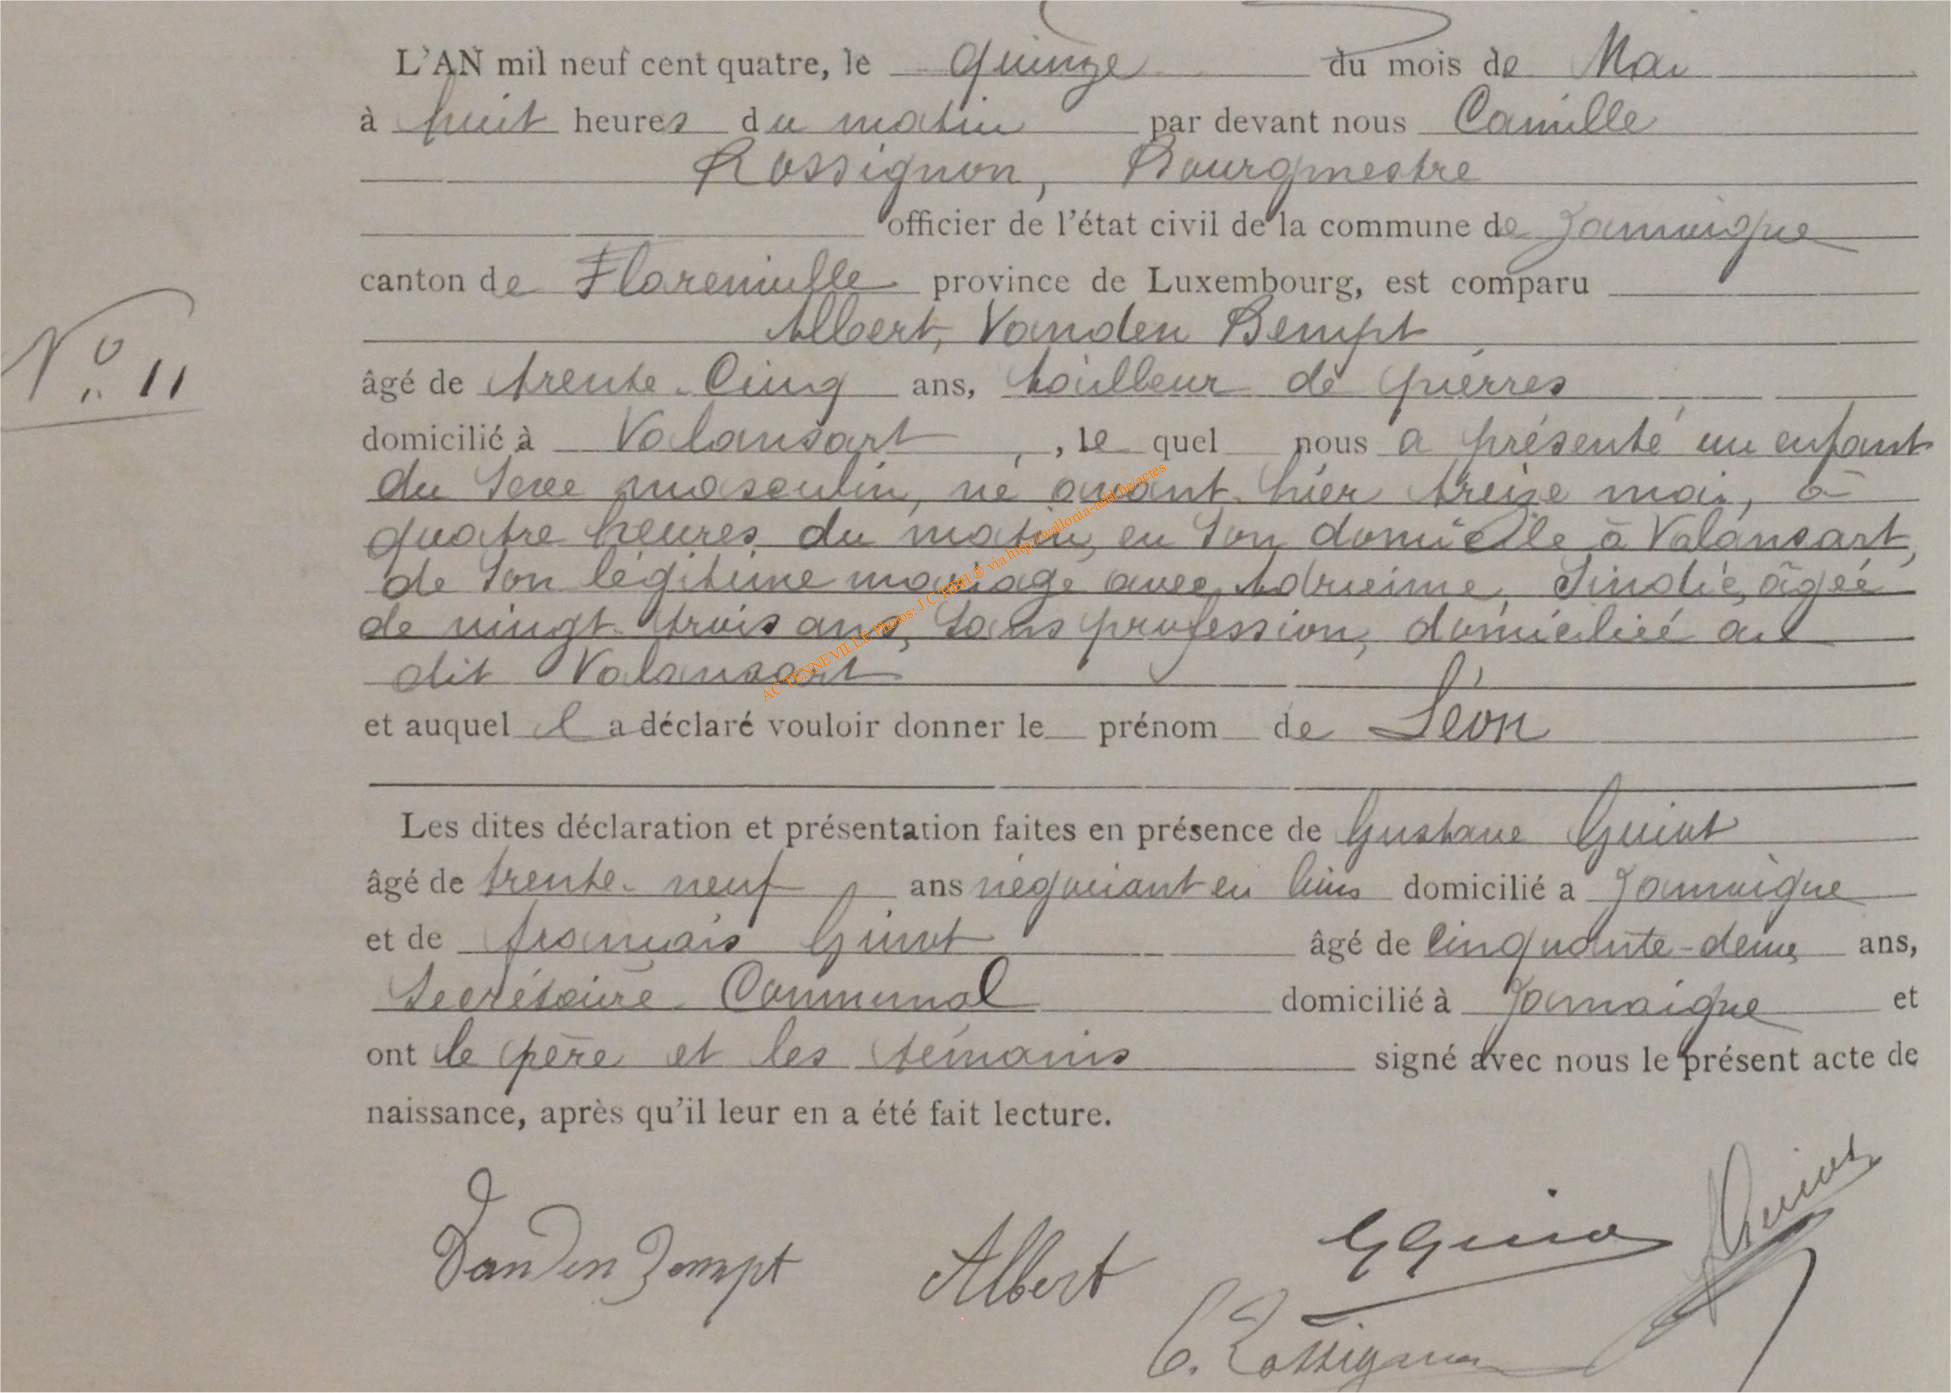 L'AN mil neuf cent quatre, le quinze du mois de Mai
à huit heures du matin par devant nous Camille
Rossignon, Bourgmestre
officier de l'état civil de la commune de Jamoigne
canton de Florenville province de Luxembourg, est comparu
Albert, Vanden Bempt
N° 11
âgé de trente-Cinq ans, tailleur de pierres
domicilié à Valansart, le quel nous a présenté un enfant
du Sexe masculin, né avant-hier treize mai, à
quatre heures du matin, en Son domicile à Valansart,
de Son légitime mariage avec Adrienne, Sindic, âgée
de vingt-trois ans, Sans profession, domicilié au
dit Valansart
et auquel il a déclaré vouloir donner le prénom de Léon
Les dites déclaration et présentation faites en présence de Gustave Guiot
âgé de trente-neuf ans négociant en domicilié a Jamoigne
et de français Guiot âgé de Cinquante-deux ans,
Secrétaire Communal domicilié à Jamoigne et
ont le père et les témoins signé avec nous le présent acte de
naissance, après qu'il leur en a été fait lecture.
Vanden Bempt Albert G Guiot Guiot
C. Rossignon